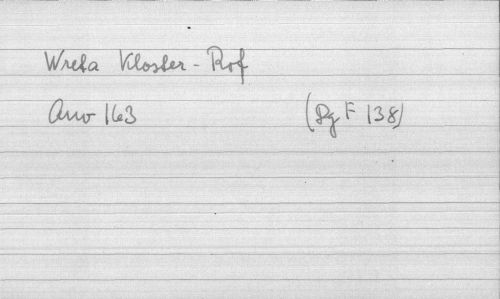 Wreta Kloster - Rof
Anv 163 (Dg F 138)